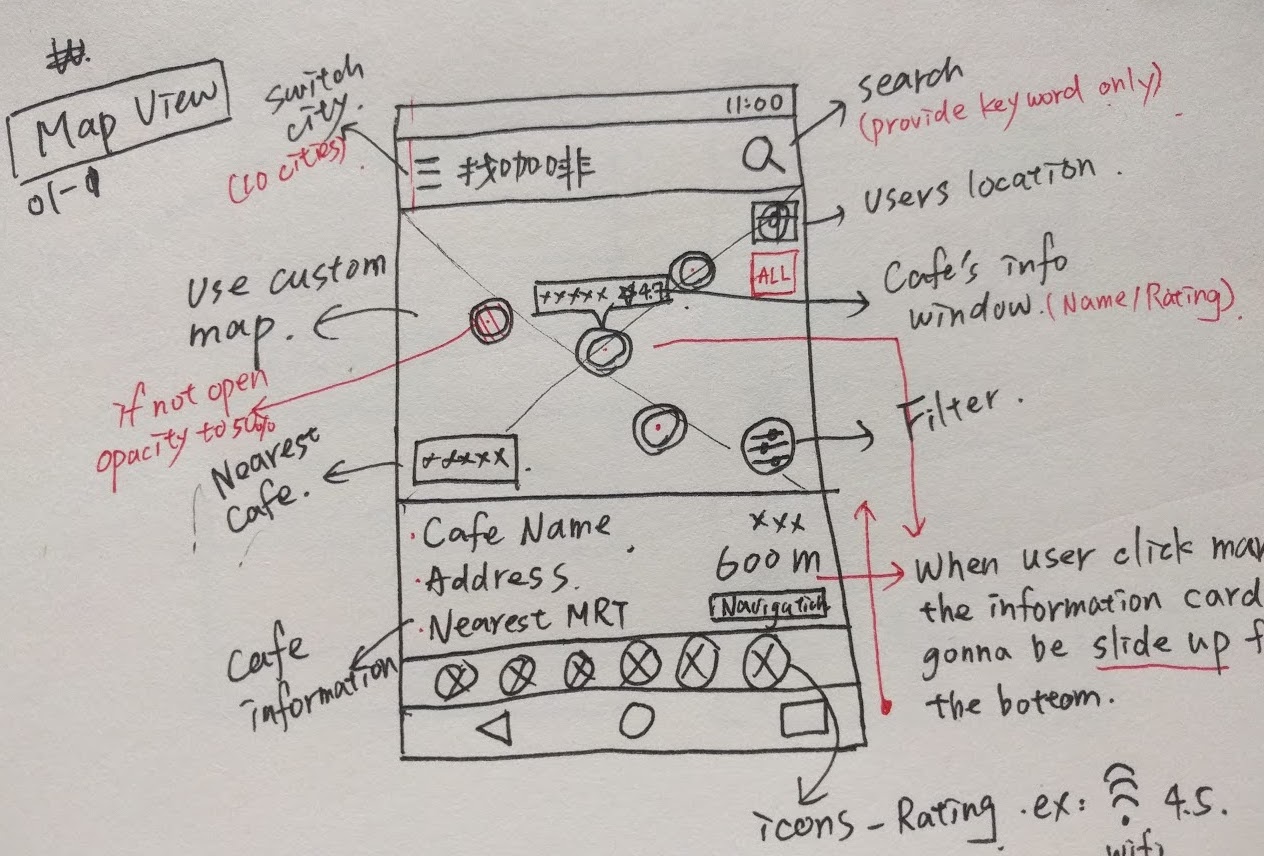 Map View
01-1
switch
city.
(10 cities)
11:00
找咖啡
search
(provide keyword only)
Users location.
ALL
xxxxx 4.7
Cafe's info
window. (Name/Rating).
Use custom
map.
if not open
opacity to 50%
Filter.
Nearest
Cafe.
xxxxx
· Cafe Name
xxx
· Address.
600 m
· Nearest MRT
Navigation
When user click
the information card
gonna be slide up
the bottom.
Cafe
information
icons - Rating. ex: 4.5.
wifi